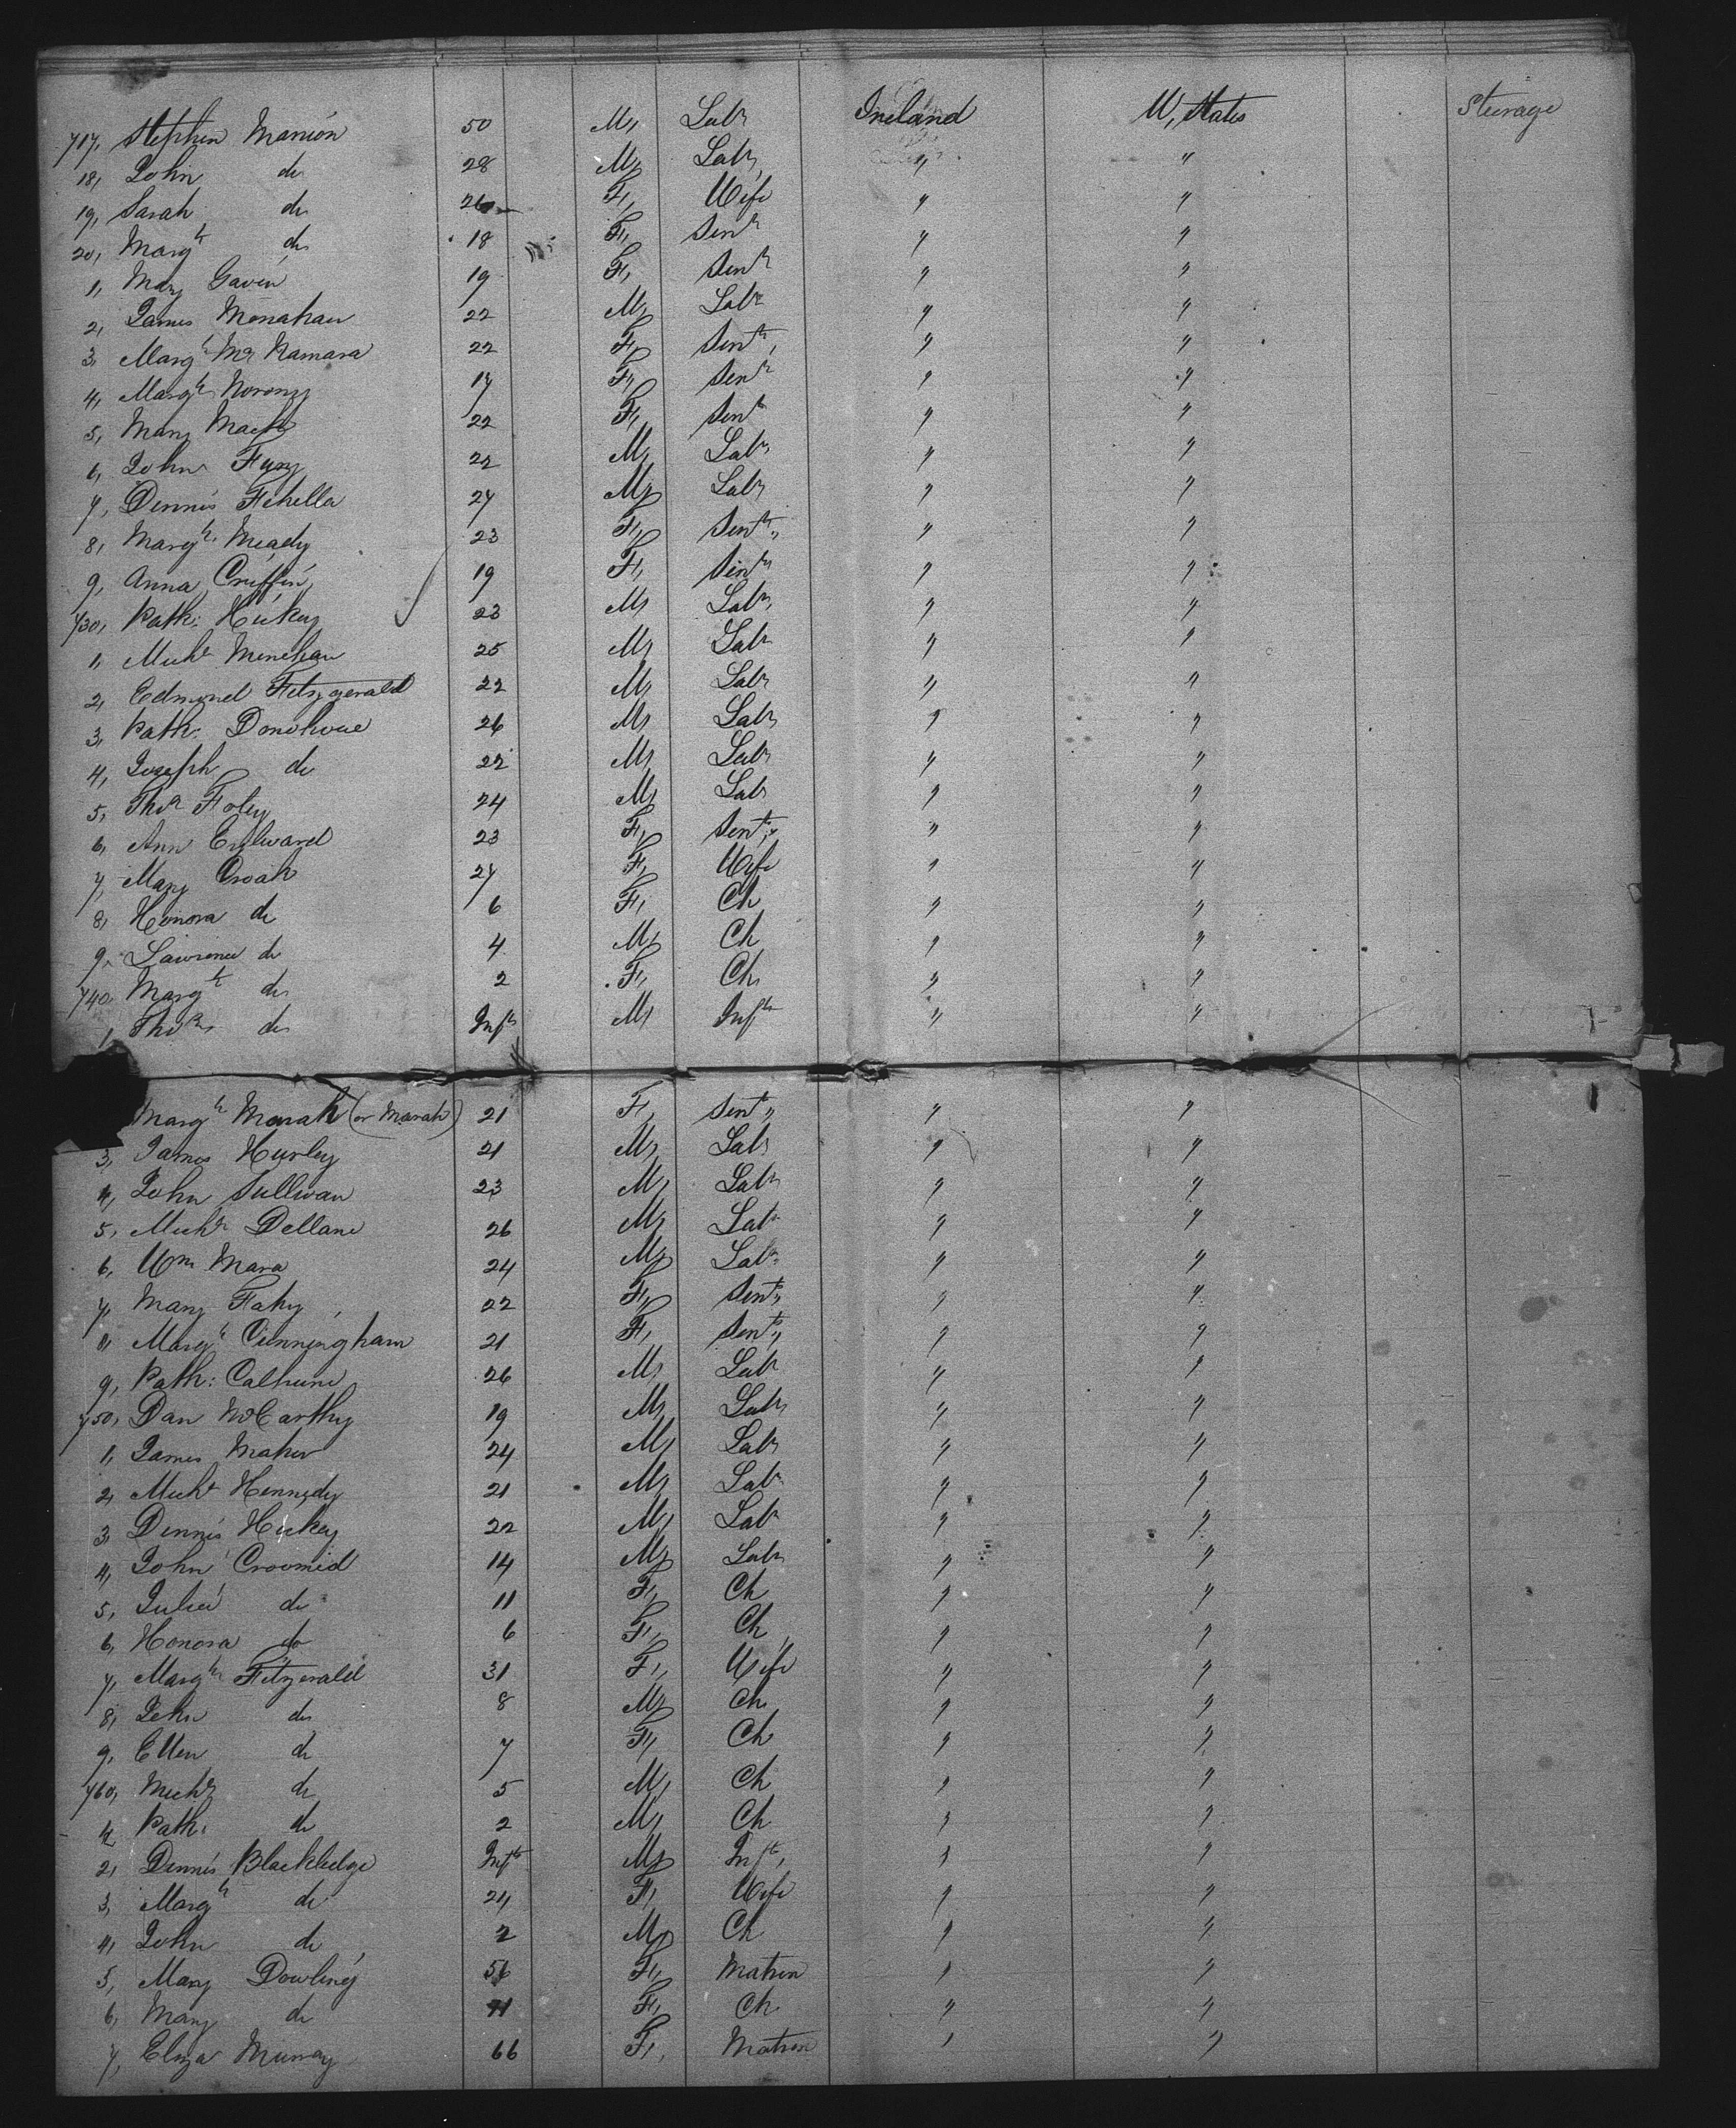 717, Stephen Manion 50 M, Labr Ireland U, States Steerage
18, John do 28 M, Labr " "
19, Sarah do 26 F, Wife " "
20, Margt do 18 F, Servt " "
1, Mary Gavin 19 F, Servt " "
2, James Monahan 22 M, Labr " "
3, Margt McNamara 22 F, Servt " "
4, Margt Norony 17 F, Servt " "
5, Mary Mack 22 F, Servt " "
6, John Fury 22 M, Labr " "
7, Dennis Fehella 27 M, Labr " "
8, Margt Meady 23 F, Servt " "
9, Anna Griffin 19 F, Servt " "
730, Patk: Hickey 23 M, Labr " "
1, Michl Menehan 25 M, Labr " "
2, Edmond Fitzgerald 22 M, Labr " "
3, Patk: Donohoue 26 M, Labr " "
4, Joseph do 22 M, Labr " "
5, Thos Foley 24 M, Labr " "
6, Ann Eylward 23 F, Servt " "
7, Mary Croak 27 F, Wife " "
8, Honora do 6 F, Ch " "
9, Lawrence do 4 M, Ch " "
740, Margt do 2 F, Ch " "
1, Thos do Inft M, Inft " "
Margt Marah (or Marah) 21 F, Servt " "
3, James Hurley 21 M, Labr " "
4, John Sullivan 23 M, Labr " "
5, Michl Dellane 26 M, Labr " "
6, Wm Mara 24 M, Labr " "
7, Mary Fahy 22 F, Servt " "
8, Margt Cunningham 21 F, Servt " "
9, Patk: Calhune 26 M, Labr " "
750, Dan McCarthy 19 M, Labr " "
1, James Maher 24 M, Labr " "
2, Michl Kennedy 21 M, Labr " "
3, Dennis Hickey 22 M, Labr " "
4, John Croomid 14 M, Labr " "
5, Julia do 11 F, Ch " "
6, Honora do 6 F, Ch " "
7, Margt Fitzgerald 31 F, Wife " "
8, John do 8 M, Ch " "
9, Ellen do 7 F, Ch " "
760, Michl do 5 M, Ch " "
1, Patk: do 2 M, Ch " "
2, Dennis Blackledge Inft M, Inft, " "
3, Margt do 24 F, Wife " "
4, John do 2 M, Ch " "
5, Mary Dowling 56 F, Matron " "
6, Mary do 11 F, Ch " "
7, Eliza Murray 66 F, Matron " "